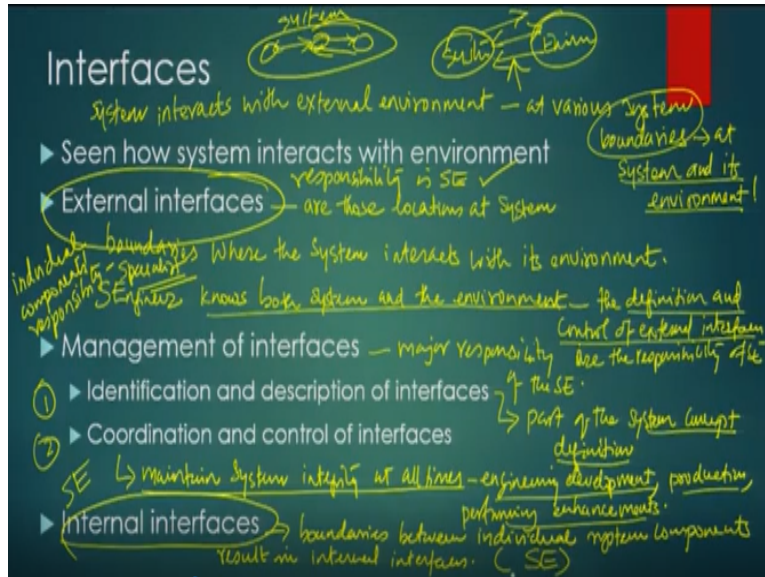 system
System Envirn
Interfaces
System interacts with external environment – at various system
boundaries → at
System and its
environment!
▶ Seen how system interacts with environment
responsibility is SE ✓
▶ External interfaces – are those locations at System
boundaries where the system interacts with its environment.
individual
components
responsibility - Specialist
SEngineer knows both system and the environment – the definition and
Control of external interfaces
are the responsibility of SE
▶ Management of interfaces – major responsibility
of the SE.
① ▶ Identification and description of interfaces
↳ part of the system concept
definition
② ▶ Coordination and control of interfaces
SE ↳ maintain System integrity at all times – engineering development, production,
performing enhancements.
▶ Internal interfaces → boundaries between individual system components
result in internal interfaces. (SE)